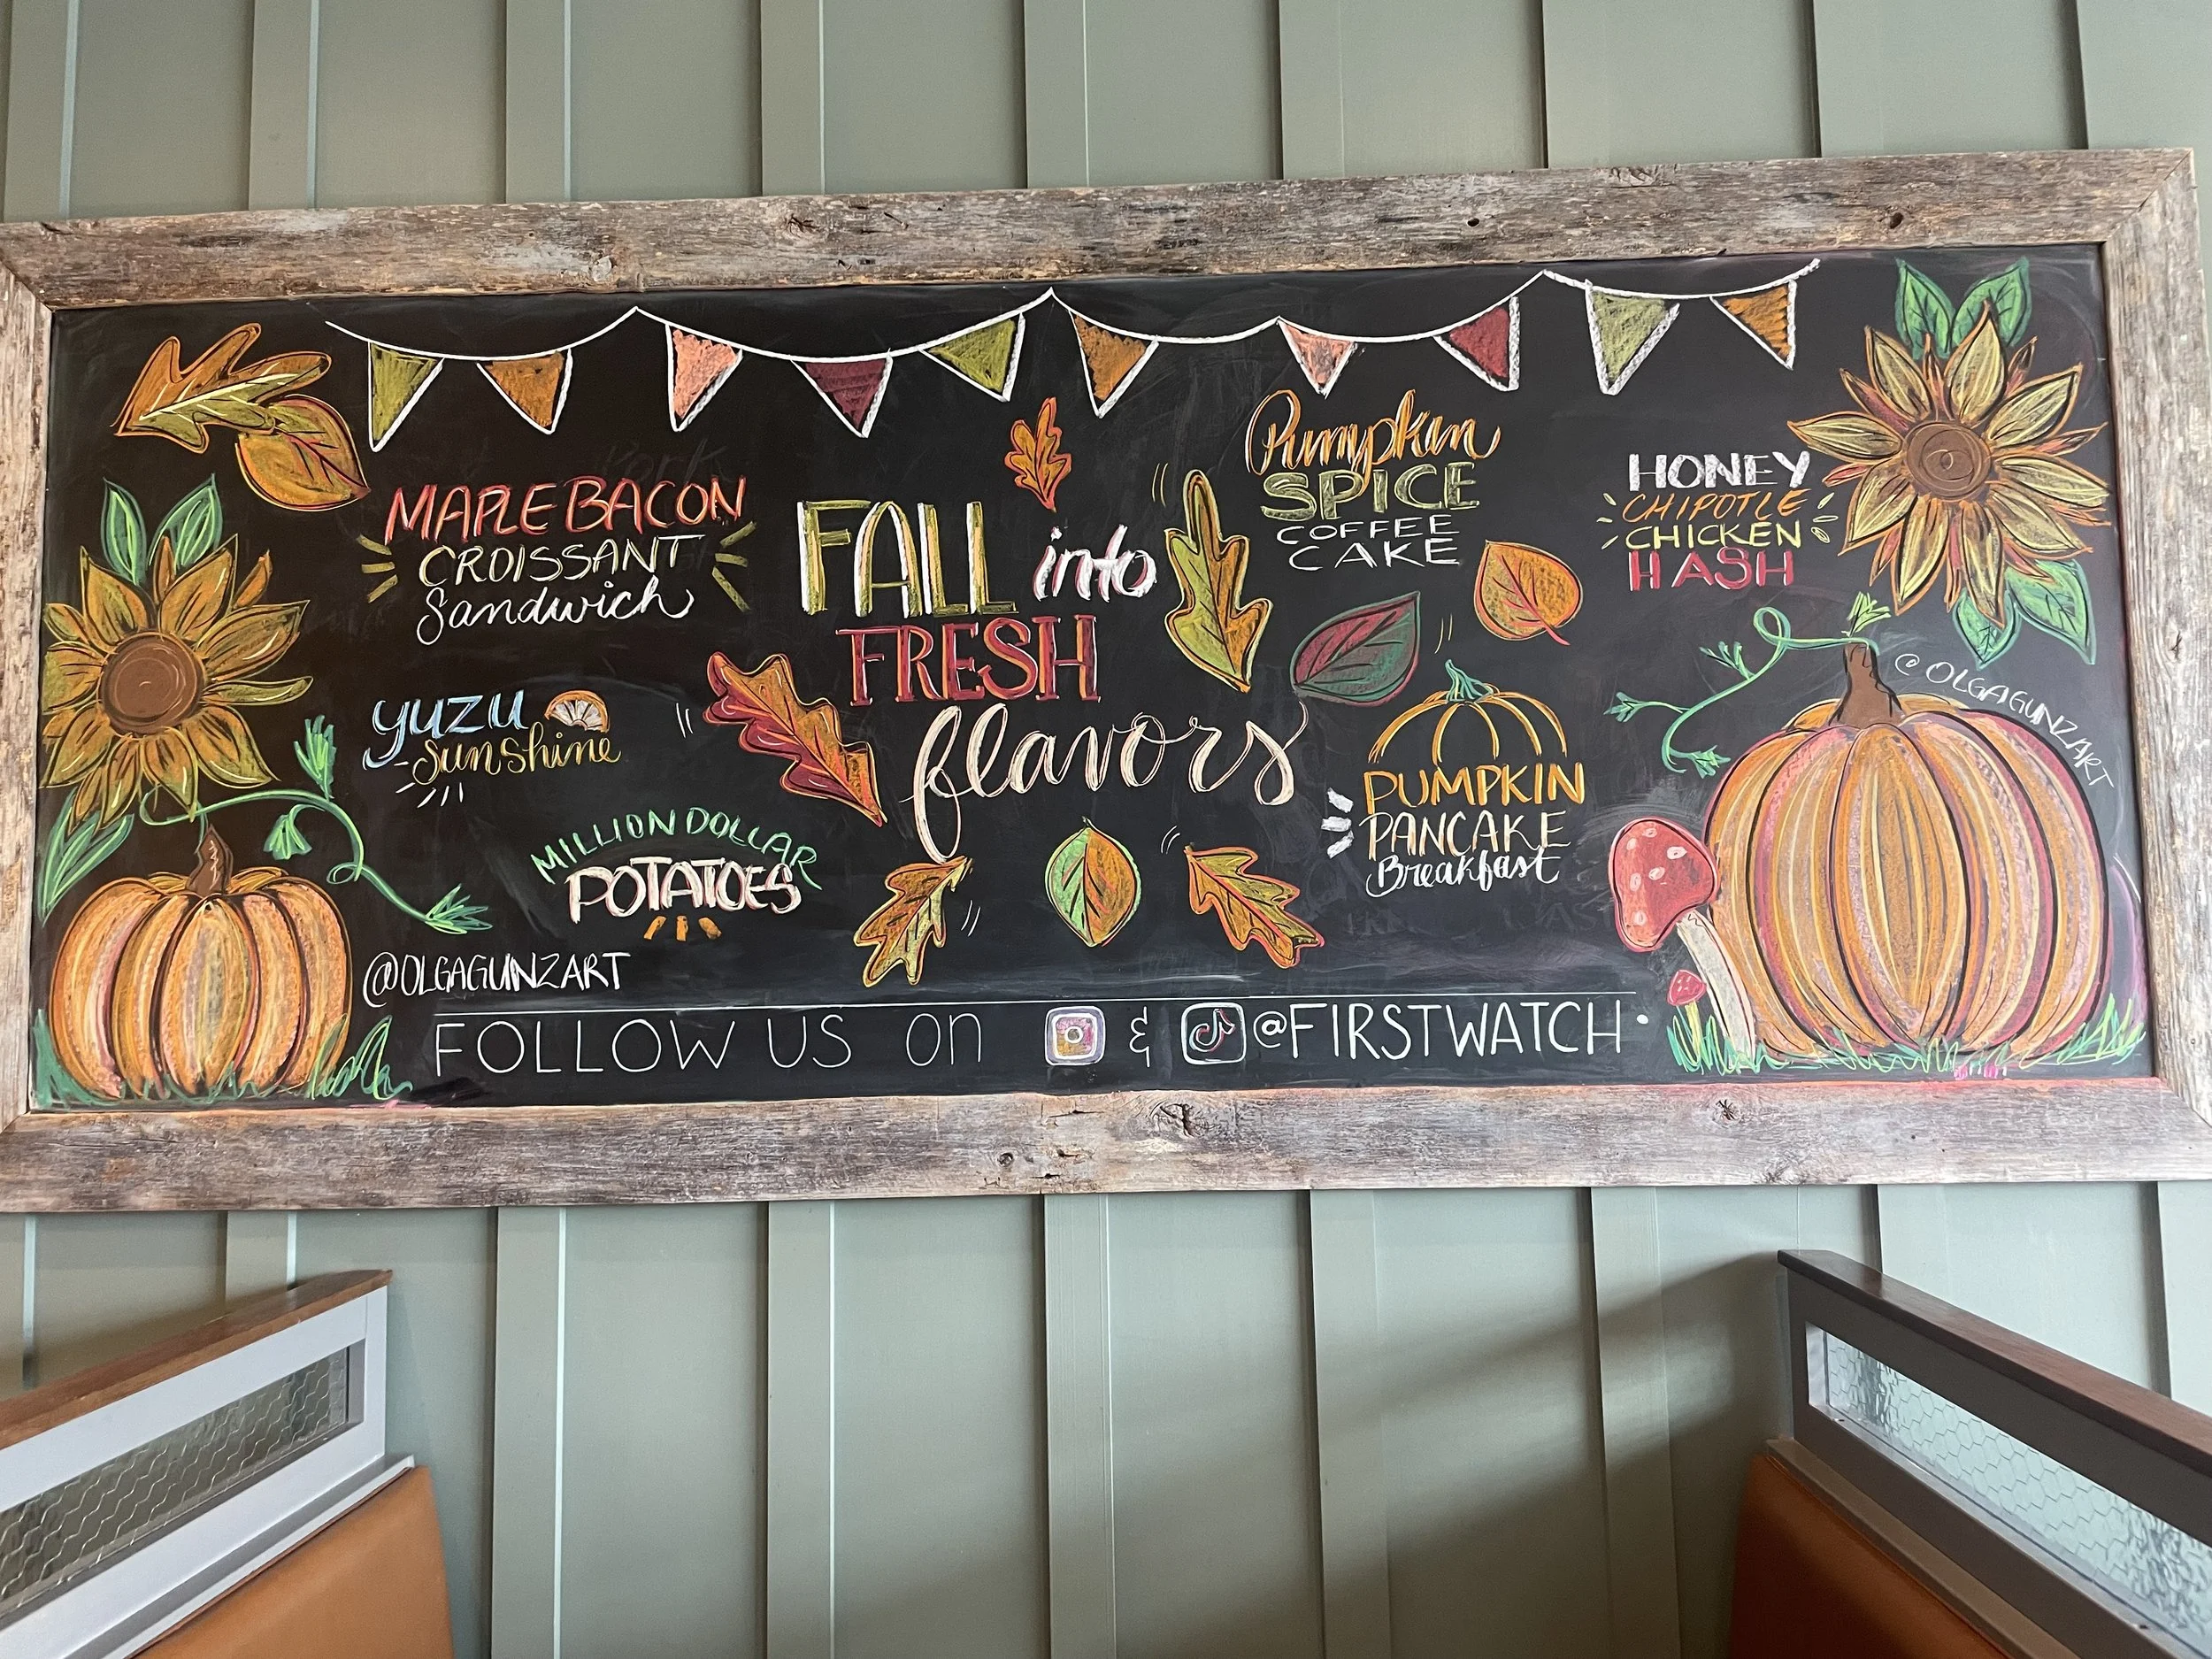 MAPLE BACON
CROISSANT
Sandwich
YUZU
Sunshine
MILLION DOLLAR
POTATOES
@OLGAGUNZART
FALL into
FRESH
flavors
Pumpkin
SPICE
COFFEE
CAKE
PUMPKIN
PANCAKE
Breakfast
HONEY
CHIPOTLE
CHICKEN
HASH
@OLGAGUNZART
FOLLOW US on & @FIRSTWATCH